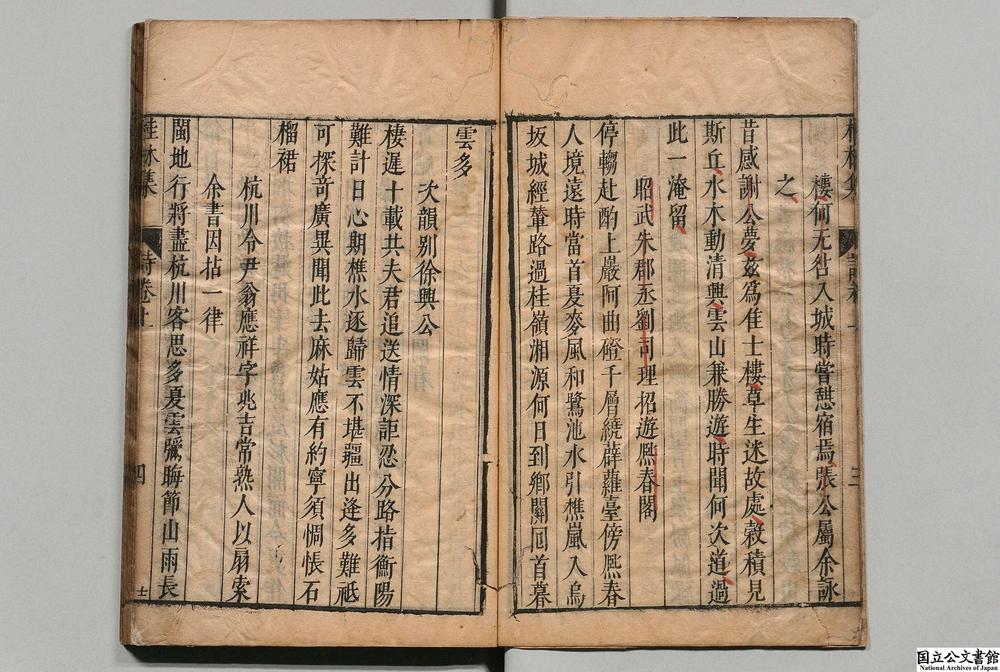 樓何无咎入城時嘗憩宿焉張公屬余詠
之
昔感謝公夢茲爲佳士樓草生迷故處穀積見
斯丘水木動清興雲山兼勝遊時聞何次道過
此一淹留
昭武朱郡丞劉司理招遊熈春閣
停轓赴酌上巖阿曲磴千層繞薜蘿臺傍熈春
人境遠時當首夏麥風和鷺池水引樵嵐入烏
坂城經輦路過桂嶺湘源何日到鄉關囘首暮
雲多
次韻别徐興公
棲遲十載共夫君追送情深詎忍分路指衡陽
難計日心期樵水逐歸雲不堪疆出逢多難祗
可探竒廣異聞此去麻姑應有約寧須惆悵石
榴裙
杭川令尹翁應祥字兆吉常熟人以扇索
余書因拈一律
閩地行將盡杭川客思多夏雲驪晦節山雨長
桂林集
詩卷
四
国立公文書館
National Archives of Japan